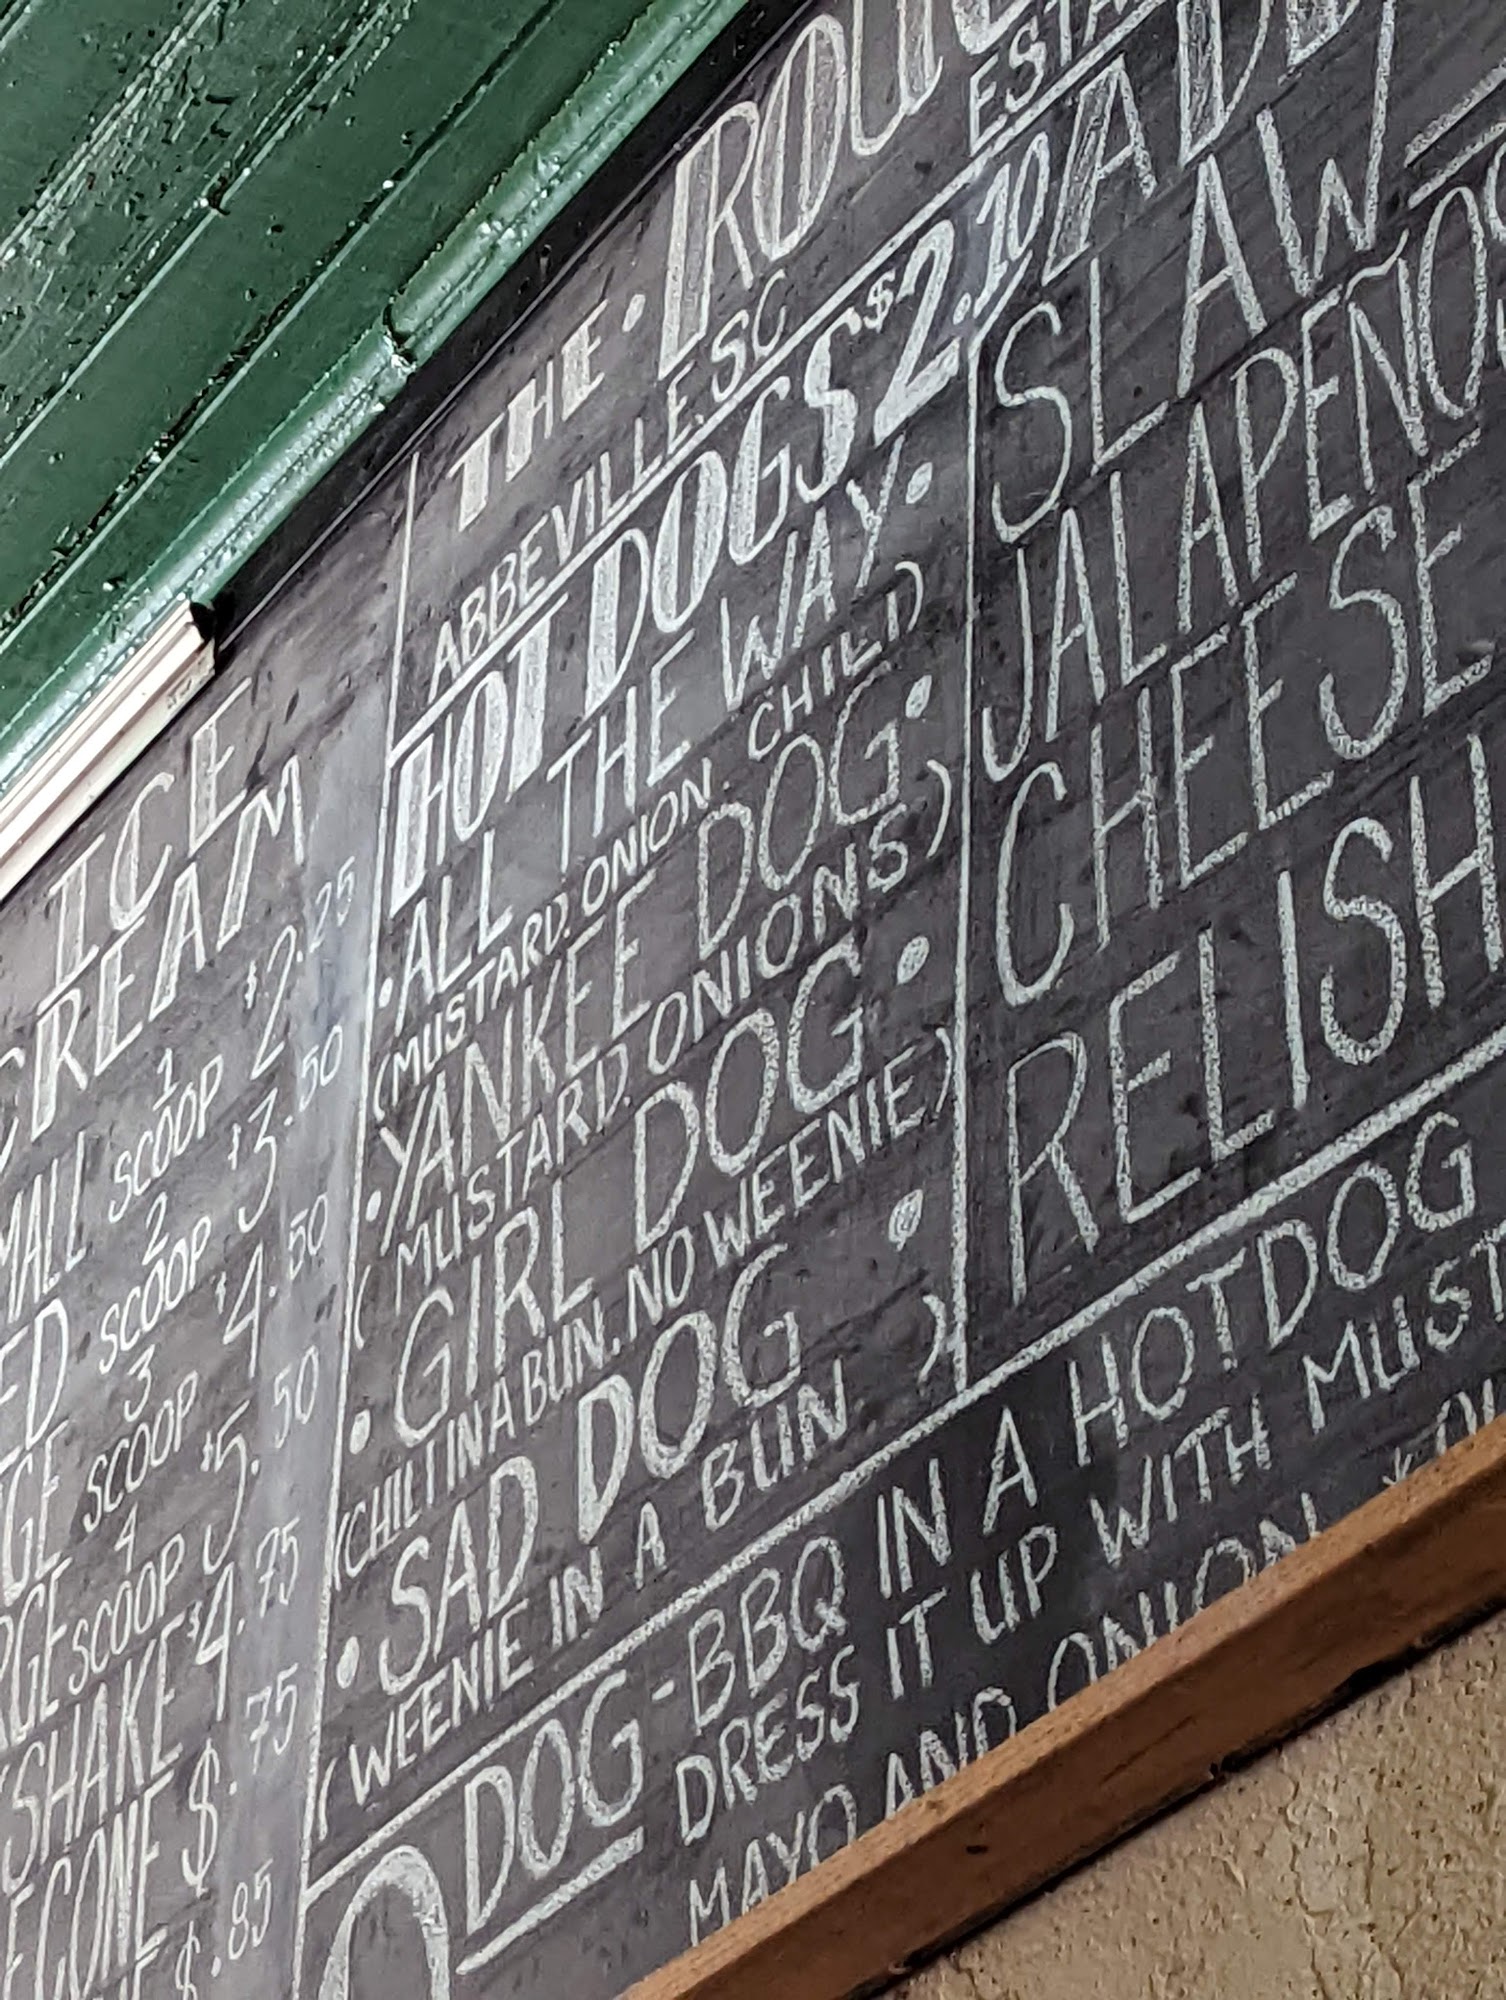 THE • ROU
ABBEVILLE. SC
ESTA
HOT DOGS $2.10
• ALL THE WAY •
(MUSTARD. ONION. CHILI)
• YANKEE DOG •
( MUSTARD. ONIONS)
• GIRL DOG •
(CHILI IN A BUN. NO WEENIE)
• SAD DOG •
(WEENIE IN A BUN )
ADD
SLAW
JALAPEÑO
CHEESE
RELISH
Q DOG - BBQ IN A HOTDOG
DRESS IT UP WITH MUST
MAYO AND ONION
ICE
CREAM
MALL 1 SCOOP $2.25
ED 2 SCOOP $3.50
GE 3 SCOOP $4.50
RGE 4 SCOOP $5.50
SHAKE $4.75
E CONE $.75
$.85